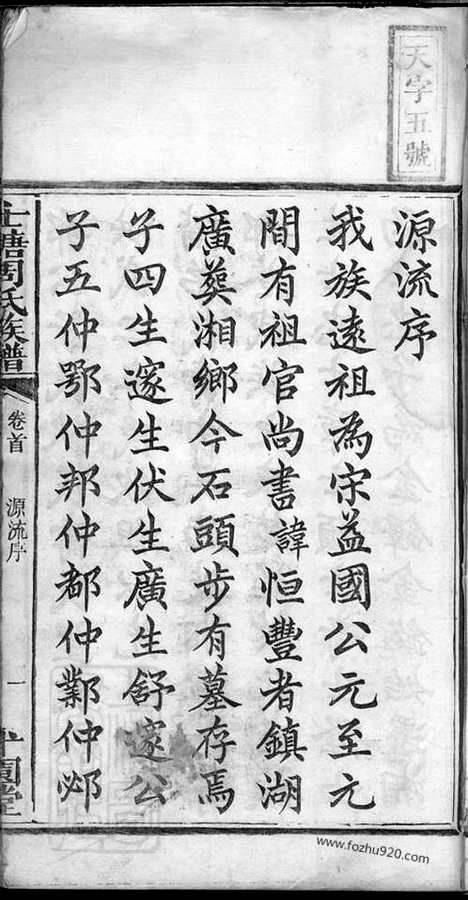 天字五號
源流序
我族遠祖為宋益國公元至元
間有祖官尚書諱恒豐者鎮湖
廣葬湘鄉今石頭步有墓存焉
子四生邃生伏生廣生舒邃公
子五仲鄂仲邦仲都仲鄴仲邲
塘周氏族譜
卷首
源流序
一
www.fozhu920.com